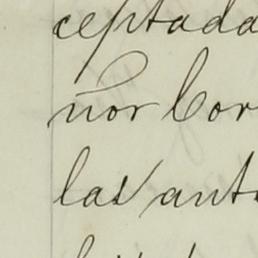 ceptada
ñor Cor
las ant